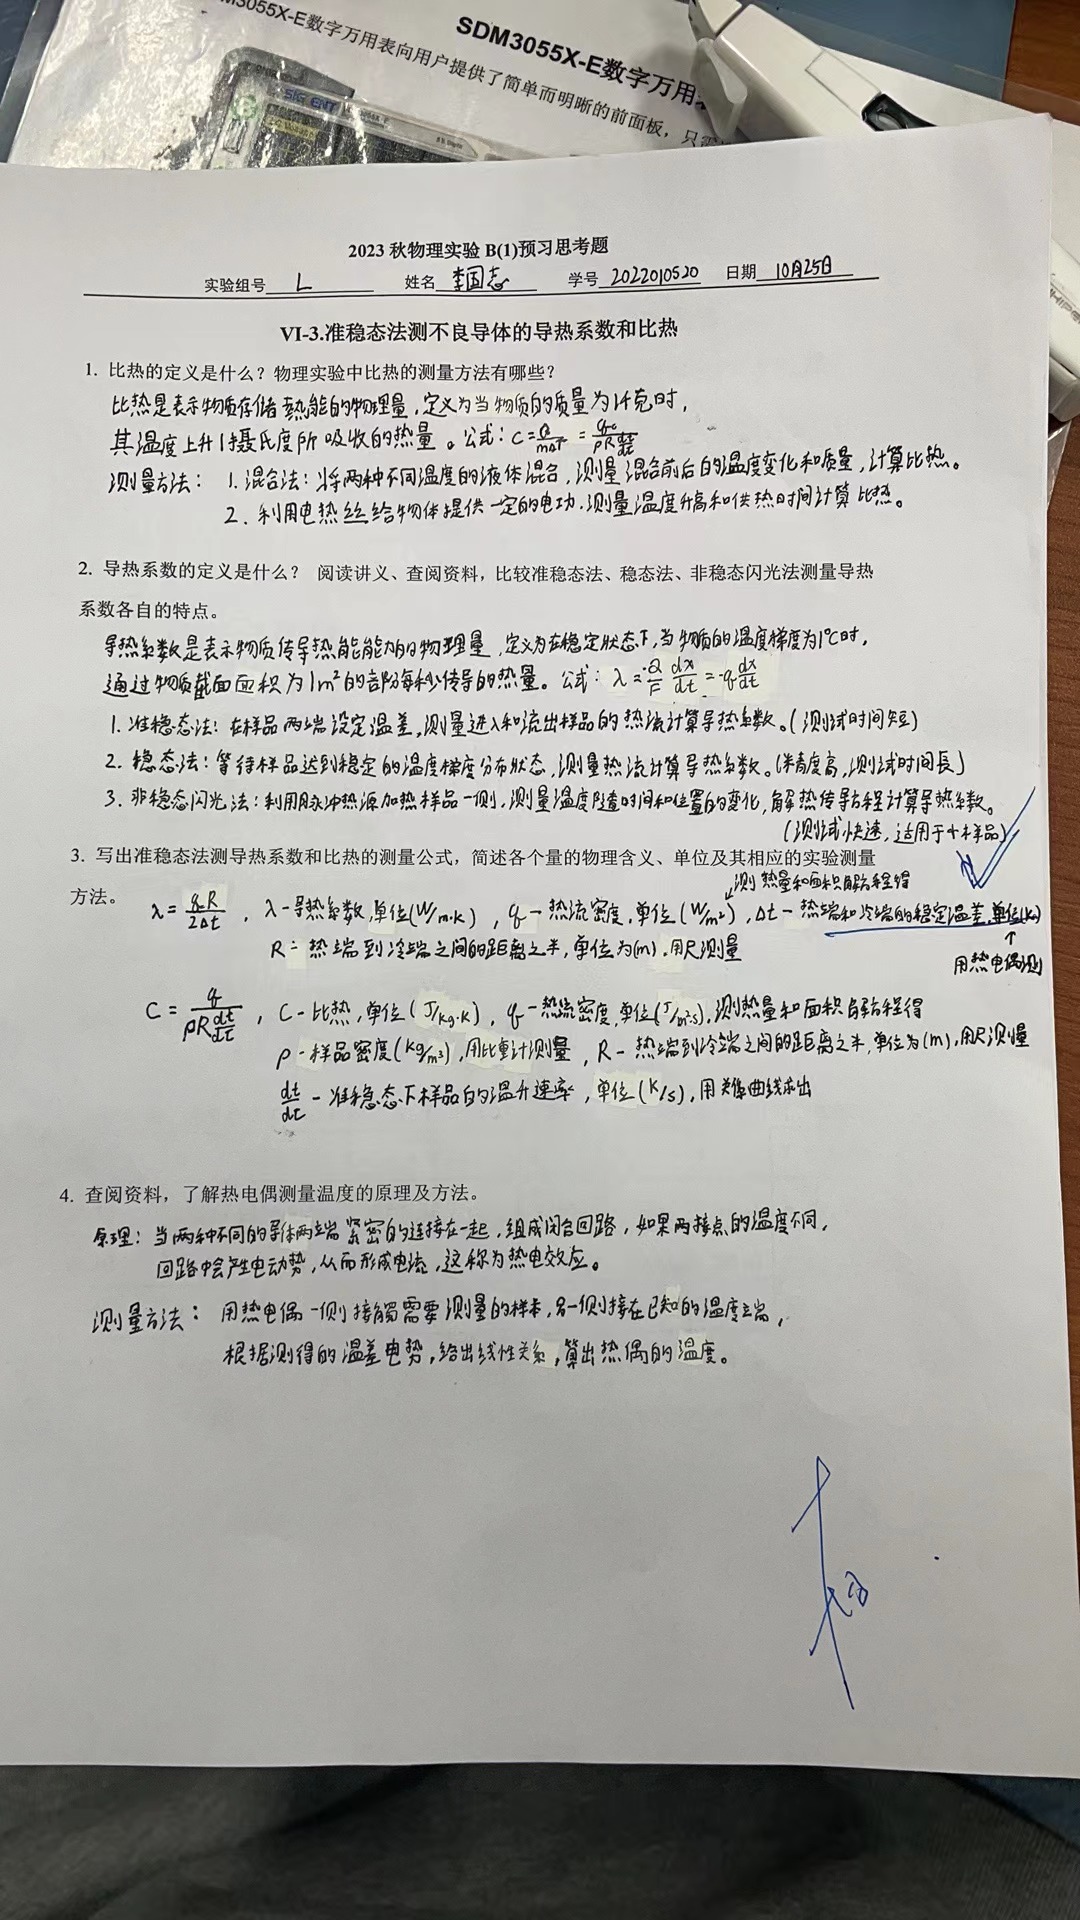 M3055X-E数字万用表向用户提供了简单而明晰的前面板，只需
SDM3055X-E数字万用
SIGLENT
2023 秋物理实验 B(1)预习思考题
实验组号 L 姓名 李国志 学号 2022010520 日期 10月25日
VI-3.准稳态法测不良导体的导热系数和比热
1. 比热的定义是什么？物理实验中比热的测量方法有哪些？
比热是表示物质存储热能的物理量，定义为当物质的质量为1千克时，
其温度上升1摄氏度所吸收的热量。公式：C=Q/mΔT = q/ρR dt/dτ
测量方法： 1. 混合法：将两种不同温度的液体混合，测量混合前后的温度变化和质量，计算比热。
2. 利用电热丝给物体提供一定的电功，测量温度升高和供热时间计算比热。
2. 导热系数的定义是什么？ 阅读讲义、查阅资料，比较准稳态法、稳态法、非稳态闪光法测量导热
系数各自的特点。
导热系数是表示物质传导热能能力的物理量，定义为在稳定状态下，当物质的温度梯度为1℃时，
通过物质截面面积为1m²的部分每秒传导的热量。公式：λ=-Q/F dx/dt = -q dx/dt
1. 准稳态法：在样品两端设定温差，测量进入和流出样品的热流计算导热系数。(测试时间短)
2. 稳态法：等待样品达到稳定的温度梯度分布状态，测量热流计算导热系数。(精度高，测试时间長)
3. 非稳态闪光法：利用脉冲热源加热样品一侧，测量温度随时间和位置的变化，解热传导方程计算导热系数。
(测试快速，适用于小样品)
3. 写出准稳态法测导热系数和比热的测量公式，简述各个量的物理含义、单位及其相应的实验测量
方法。
测热量和面积解方程得
λ = qR/2Δt ，λ-导热系数，单位(W/m·K)，q-热流密度，单位(W/m²)，Δt-热端和冷端的稳定温差，单位(K)
↑
R = 热端到冷端之间的距离之半，单位为(m)，用尺测量
用热电偶测
C = q/ρR dt/dτ ，C-比热，单位(J/kg·K)，q-热流密度，单位(J/m²·s)，测热量和面积解方程得
ρ-样品密度(kg/m³)，用比重计测量，R-热端到冷端之间的距离之半，单位为(m)，用尺测量
dt/dτ - 准稳态下样品的温升速率，单位(K/s)，用关系曲线求出
4. 查阅资料，了解热电偶测量温度的原理及方法。
原理：当两种不同的导体两端紧密的连接在一起，组成闭合回路，如果两接点的温度不同，
回路中会产生电动势，从而形成电流，这称为热电效应。
测量方法： 用热电偶一侧接触需要测量的样本，另一侧接在已知的温度端，
根据测得的温差电势，给出线性关系，算出热偶的温度。